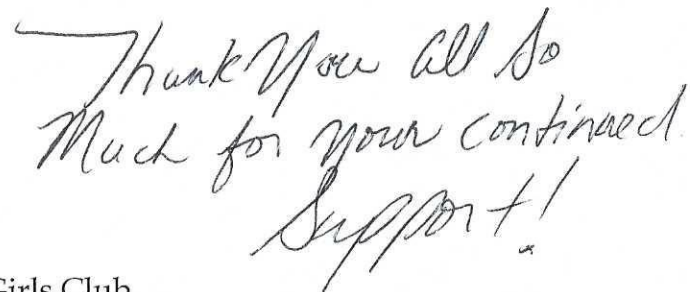 Thank You all So
Much for your continued
Support!
Girls Club